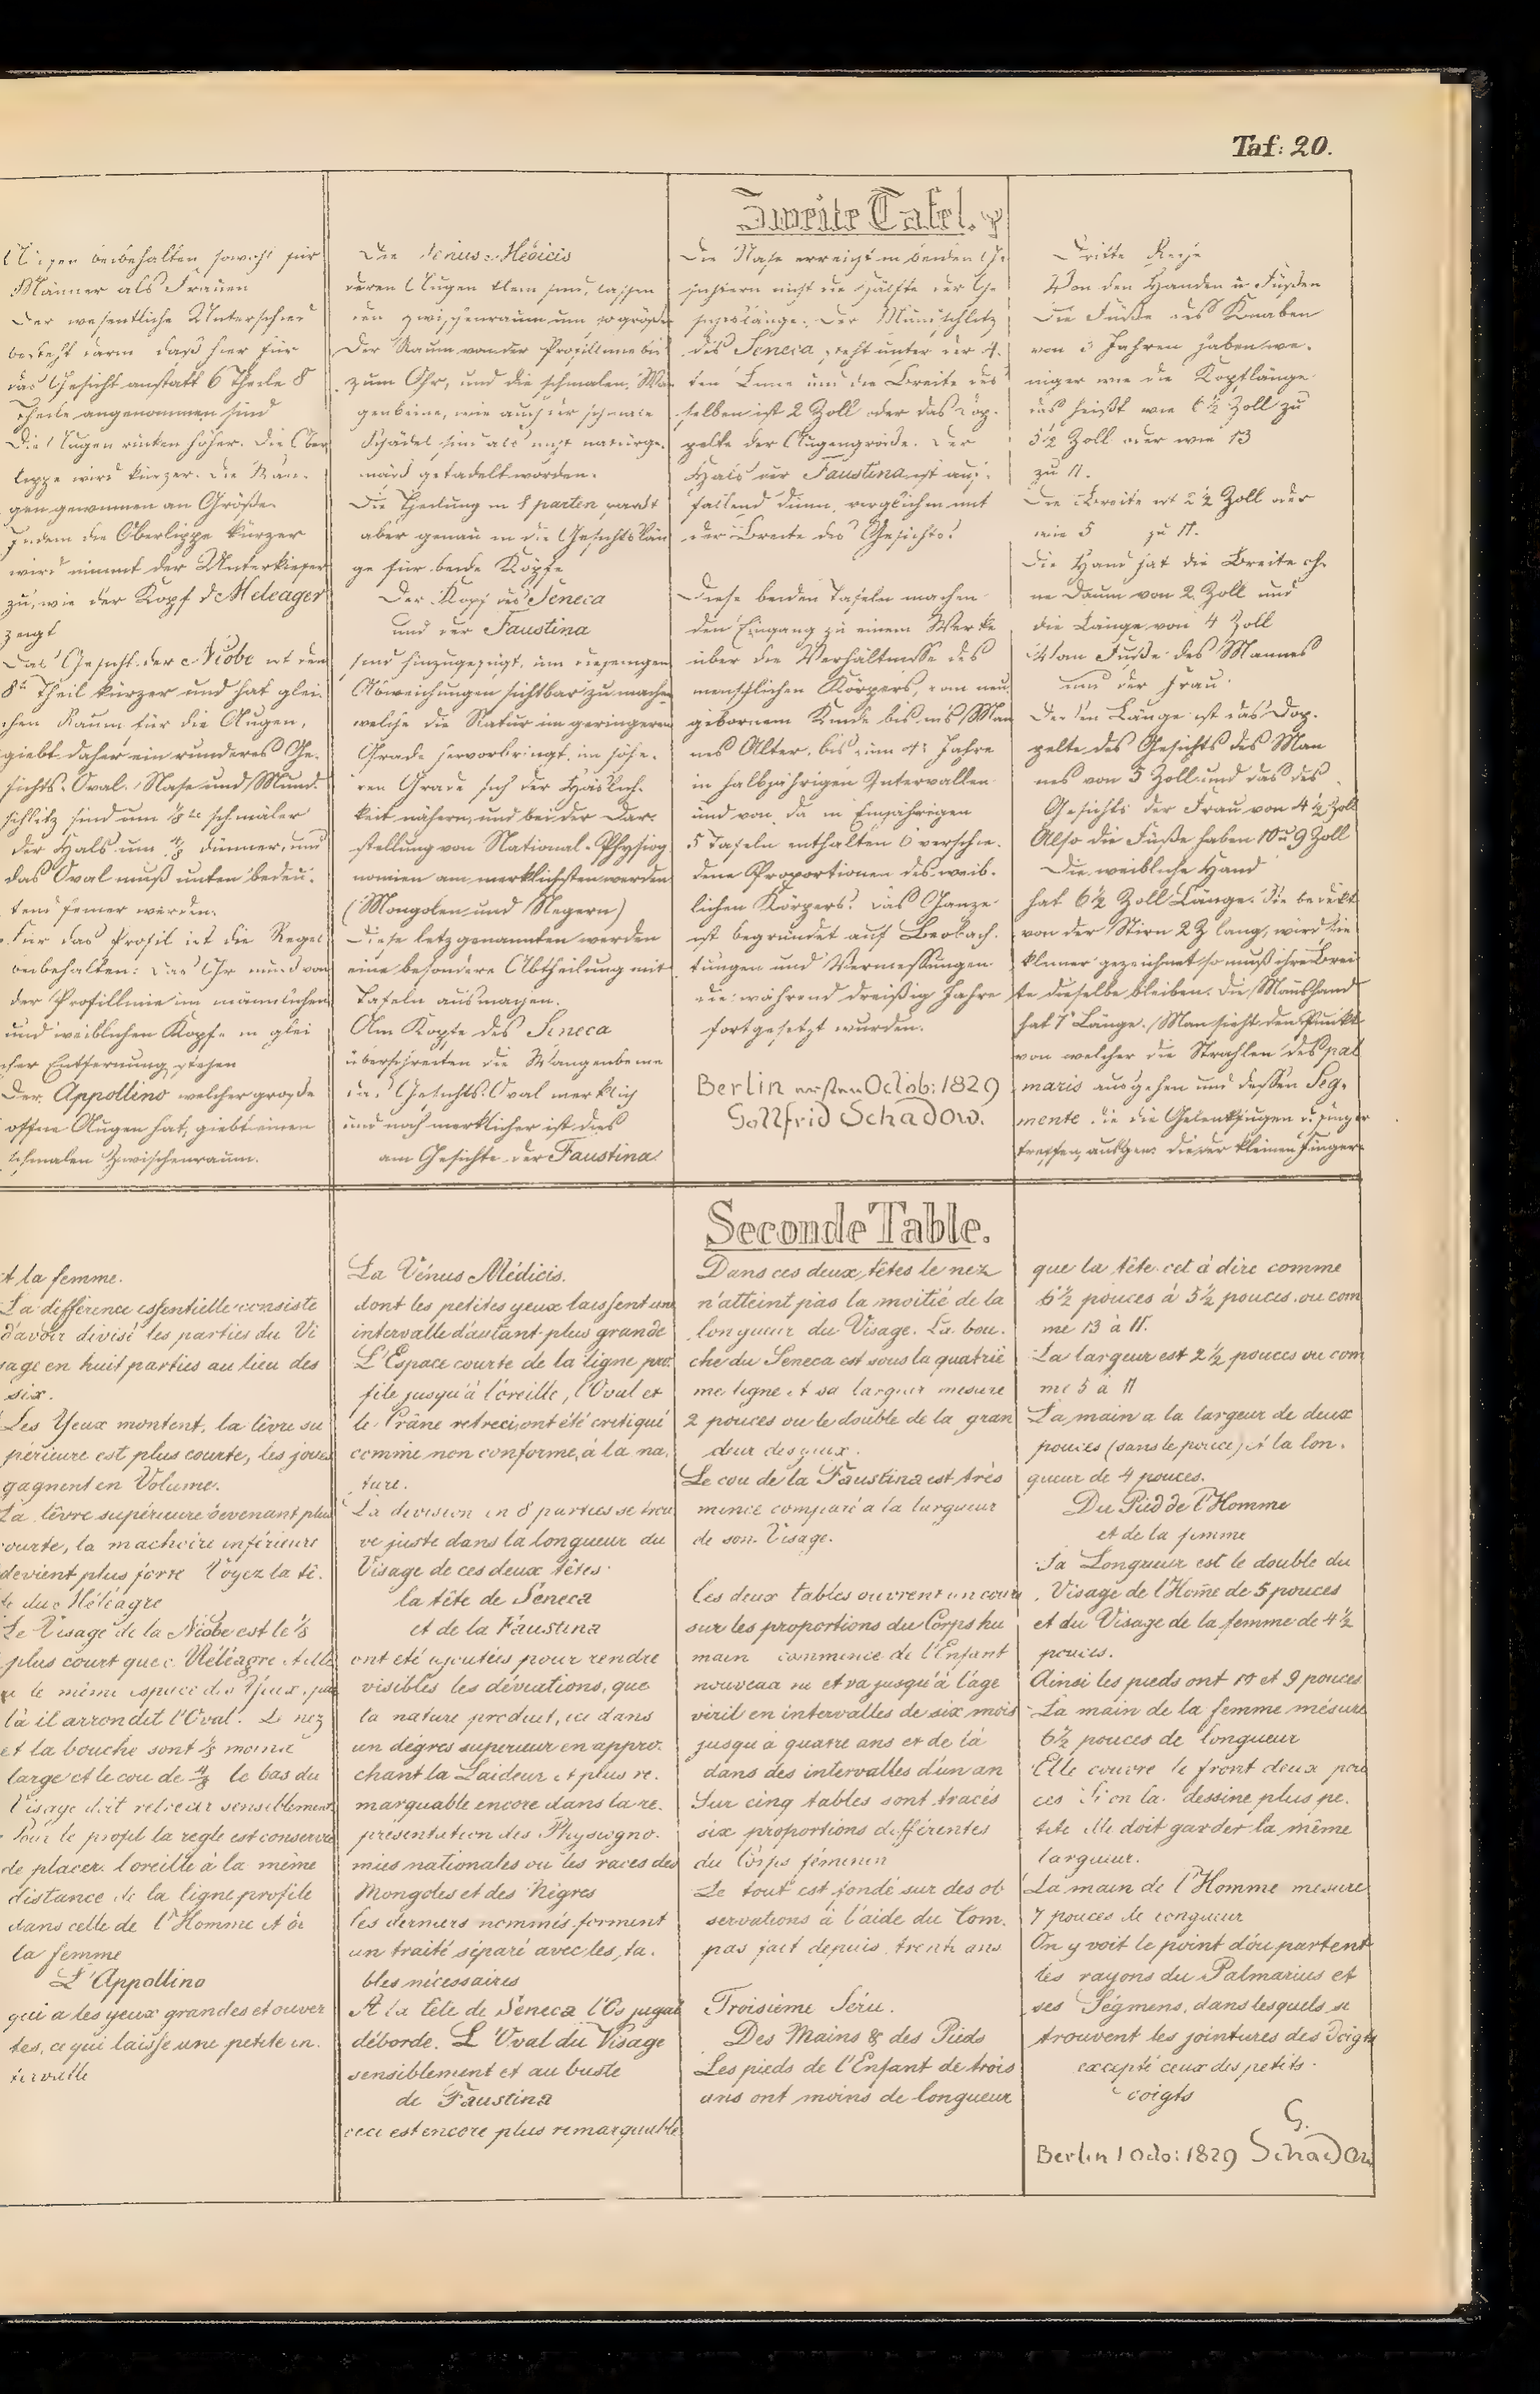 Taf: 20.
Augen beibehalten sowohl für
Männer als Frauen
Der wesentliche Unterschied
besteht darin daß hier für
das Gesicht anstatt 6 Theile 8
Theile angenommen sind
Die Augen rücken höher. Die Ober
lippe wird kürzer. Die Wan-
gen gewinnen an Größe.
Indem die Oberlippe kürzer
wird nimmt der Unterkiefer
zu, wie der Kopf d. Meleager
zeigt
Das Gesicht der Niobe ist den
8tn Theil kürzer und hat glei-
chen Raum für die Augen,
giebt daher ein runderes Ge-
sichts-Oval. Nase und Mund-
schlitz sind um 1/8 schmäler
der Hals um dünner, und
das Oval muß unten bedeu-
tend werden.
Für das Profil ist die Regel
beibehalten: Das Ohr muß von
der Profillinie im männlichen
und weiblichen Kopfe in glei
cher Entfernung stehen
Der Appollino welcher große
offne Augen hat, giebt einen
schmalen Zwischenraum.
Die Venus-Medicis
deren Augen klein sind, lassen
den Zwischenraum um so größer
Der Raum von der Profillinie bis
zum Ohr, und die schmalen Wan
genbeine, wie auch der schmale
Schädel sind als nicht naturge-
mäß getadelt worden.
Die Theilung in 8 parten paßt
aber genau in die Gesichtslän
ge für beide Köpfe
Der Kopf des Seneca
und der Faustina
sind hinzugefügt, um diejenigen
Abweichungen sichtbar zu machen
welche die Natur im geringeren
Grade hervorbringt, im höhe-
ren Grade sich der Häslich-
keit nähern, und bei der Dar-
stellung von National-Physiog
nomien am merklichsten werden
(Mongolen und Negern)
Diese letzgenannten werden
eine besondere Abtheilung mit
Tafeln ausmachen.
Am Kopfe des Seneca
überschreiten die Wangenbeine
das Gesichts-Oval merklich
und noch merklicher ist dies
am Gesichte der Faustina
Zweite Tafel.
Die Nase erreicht in beiden Ge
sichtern nicht die Hälfte der Ge
sichtslänge. Der Mundschlitz
des Seneca steht unter der 4-
ten Linie und die Breite des
selben ist 2 Zoll oder das Dop-
pelte der Augengröße. Der
Hals der Faustina ist auf-
fallend dünn, verglichen mit
der Breite des Gesichts.
Diese beiden Tafeln machen
den Eingang zu einem Werke
über die Verhältnisse des
menschlichen Körpers, vom neu
gebornem Kinde bis ins Man
nes Alter, bis zum 4t Jahre
in halbjährigen Intervallen
und von da in Einjährigen
5 Tafeln enthalten 6 verschie-
dene Proportionen des weib-
lichen Körpers. Das Ganze
ist begründet auf Beobach-
tungen und Vermessungen
die während dreißig Jahre
fortgesetzt wurden.
Berlin ersten Octob: 1829
Gottfrid Schadow.
Dritte Reihe
Von den Handen u Füßen
Die Füße des Knaben
von 3 Jahren haben we-
niger wie die Kopflänge
das heißt wie 6½ Zoll zu
5½ Zoll oder wie 13
zu 11.
Die Breite ist 2½ Zoll oder
wie 5 zu 11.
Die Hand hat die Breite oh-
ne Daum von 2 Zoll und
die Länge von 4 Zoll
Vom Fuße des Mannes
und der Frau
Deren Länge ist das Dop-
pelte des Gesichts des Man
nes von 5 Zoll und das des
Gesichts der Frau von 4½ Zoll
Also die Füße haben 10 u 9 Zoll
Die weibliche Hand
hat 6½ Zoll Länge. Sie bedekt
von der Stirn 2 Z lang, wird sie
kleiner gezeichnet so muß ihre Brei
te dieselbe bleiben. Die Manshand
hat 7" Länge. Man sieht den Punkt
von welcher die Strahlen des pal
maris ausgehen und dessen Seg-
mente die die Gelenkfugen d. Finger
treffen, ausgen: die der kleinen Finger
t la femme.
La différence essentielle consiste
d'avoir divisé les parties du Vi
sage en huit parties au lieu des
six.
Les Yeux montent, la lèvre su
périeure est plus courte, les joues
gagnent en Volume.
La lèvre supérieure devenant plus
courte, la machoire inférieure
devient plus forte Voyez la tê-
te du Méléagre
Le Visage de la Niobe est le ⅛
plus court que Méléagre et elle
a le même espace des Yeux, par
là il arrondit l'Oval. Le nez
et la bouche sont ⅛ moins
large et le cou de le bas du
Visage doit retrecir sensiblement
Pour le profil la regle est conservée
de placer l'oreille à la même
distance de la ligne profile
dans celle de l'Homme et de
la femme
L'Appollino
qui a les yeux grandes et ouver
tes, ce qui laisse une petite in-
tervalle
La Vénus Médicis.
dont les petites yeux laissent une
intervalle d'autant plus grande
L'Espace courte de la ligne pro
file jusqu'à l'oreille, l'Oval et
le Crâne retreci, ont été critiqué
comme non conforme, à la na-
ture.
La division en 8 parties se trou
ve juste dans la longueur du
Visage de ces deux têtes
la tête de Seneca
et de la Faustina
ont été ajoutées pour rendre
visibles les déviations, que
la nature produit, ici dans
un degres superieur en appro-
chant la Laideur et plus re-
marquable encore dans la re-
présentation des Physiogno-
mies nationales ou les races des
Mongoles et des Nègres
les derniers nommés forment
un traité séparé avec les, ta-
bles nécessaires
A la tête de Seneca l'Os jugal
déborde. L'Oval du Visage
sensiblement et au buste
de Faustina
ceci est encore plus remarquable
Seconde Table.
Dans ces deux têtes le nez
n'atteint pas la moitié de la
longueur du Visage. La bou-
che du Seneca est sous la quatriè
me ligne et sa largeur mesure
2 pouces ou le double de la gran
deur des yeux.
Le cou de la Faustina est très
mince comparé a la largueur
de son Visage.
Les deux tables ouvrent un cours
sur les proportions du Corps hu
main commence de l'Enfant
nouveau né et va jusqu'à l'âge
viril en intervalles de six mois
jusqu'à quatre ans et de là
dans des intervalles d'un an
Sur cinq tables sont tracés
six proportions différentes
du Corps féminin
Le tout est fondé sur des ob
servations à l'aide du Com-
pas fait depuis trente ans
Troisième Série.
Des Mains & des Pieds
Les pieds de l'Enfant de trois
ans ont moins de longueur
que la tête cet à dire comme
6½ pouces à 5½ pouces. ou com
me 13 à 11.
La largeur est 2½ pouces ou com
me 5 à 11
La main a la largeur de deux
pouces (sans le pouce) et la lon-
gueur de 4 pouces.
Du Pied de l'Homme
et de la femme
Sa Longueur est le double du
Visage de l'Home de 5 pouces
et du Visage de la femme de 4½
pouces.
Ainsi les pieds ont 10 et 9 pouces
La main de la femme mésure
6½ pouces de longueur
Elle couvre le front deux pou
ces Si on la dessine plus pe-
tite elle doit garder la même
largueur.
La main de l'Homme mesure
7 pouces de longueur
On y voit le point d'ou partent
les rayons du Palmarius et
ses Ségmens, dans lesquels se
trouvent les jointures des doigts
excepté ceux des petits
doigts
G.
Berlin 1 Octo: 1829 Schadow